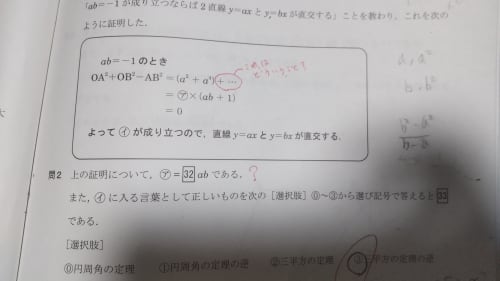 「ab=-1が成り立つならば2直線y=axとy=bxが直交する」ことを教わり, これを次の
ように証明した.
ab=-1のとき
これは
どういうこと?
OA²+OB²-AB²=(a⁴+a⁴)+…
=㋐×(ab+1)
=0
よって㋑が成り立つので, 直線y=axとy=bxが直交する.
a, a²
b, b²
b²-a²
b-a
問2 上の証明について, ㋐=32abである. ?
また, ㋑に入る言葉として正しいものを次の[選択肢]⓪~③から選び記号で答えると33
である.
[選択肢]
⓪円周角の定理 ①円周角の定理の逆 ②三平方の定理 ③三平方の定理の逆